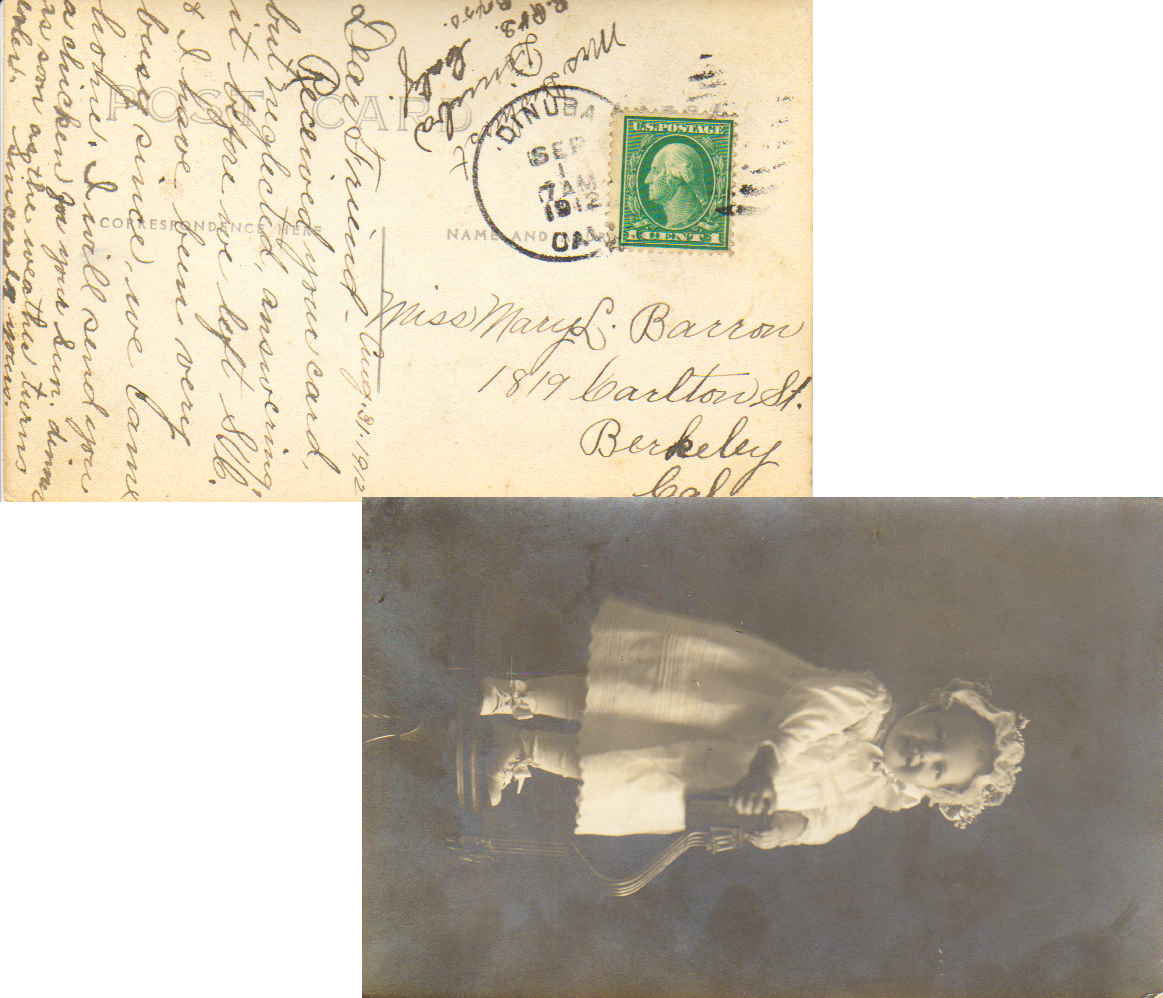 POST CARD
CORRESPONDENCE HERE
NAME AND
DINUBA
SEP
1
7 AM
1912
CAL.
U.S. POSTAGE
Miss Mary L. Barron
1819 Carlton St.
Berkeley
Cal
Aug. 31-1912
Dear Friend-
Received your card,
but neglected, answering
it before we left
& I have been very
busy since, we came
home. I will send you
a chicken for your sun. dinner
as soon as the weather turns
cooler.
Sincerely yours.
Mrs
Dinuba
Calif